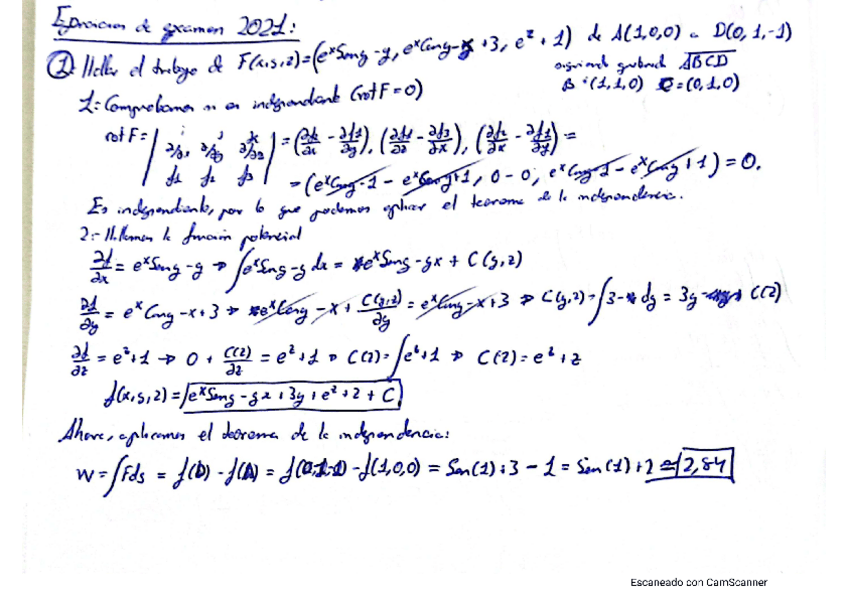 Ejercicios de examen 2021:
① Hallar el trabajo de F(x,y,z)=(eˣSeny -y, eˣCosy-x +3, eᶻ + 1) de A(1,0,0) a D(0, 1,-1)
siguiendo ABCD
B=(1,1,0) C=(0,1,0)
1: Comprobamos si es independiente (rot F=0)
rot F= | i j k
∂/∂x ∂/∂y ∂/∂z
f1 f2 f3 | = (
) =
= (eˣCosy-1 - eˣCosy+1, 0-0, eˣCosy-1 - eˣCosy+1) = 0.
Es independiente, por lo que podemos aplicar el teorema de la independencia.
2:- Hallamos la función potencial
∂f/∂x = eˣSeny -y → ∫eˣSeny -y dx = eˣSeny -yx + C(y,z)
∂f/∂y = eˣCosy -x+3 → eˣCosy -x + C(y,z)/∂y = eˣCosy -x+3 → C(y,z)=∫3 dy = 3y C(z)
∂f/∂z = eᶻ+1 → 0 + C(z)/∂z = eᶻ+1 → C(z)=∫eᶻ+1 → C(z)=eᶻ+z
f(x,y,z)= eˣSeny -yx +3y +eᶻ +z + C
Ahora, aplicamos el teorema de la independencia:
W=∫Fds = f(D) - f(A) = f(0,1,-1) - f(1,0,0) = Sen(1)+3 - 1 = Sen(1)+2 ≅ 2,84
Escaneado con CamScanner